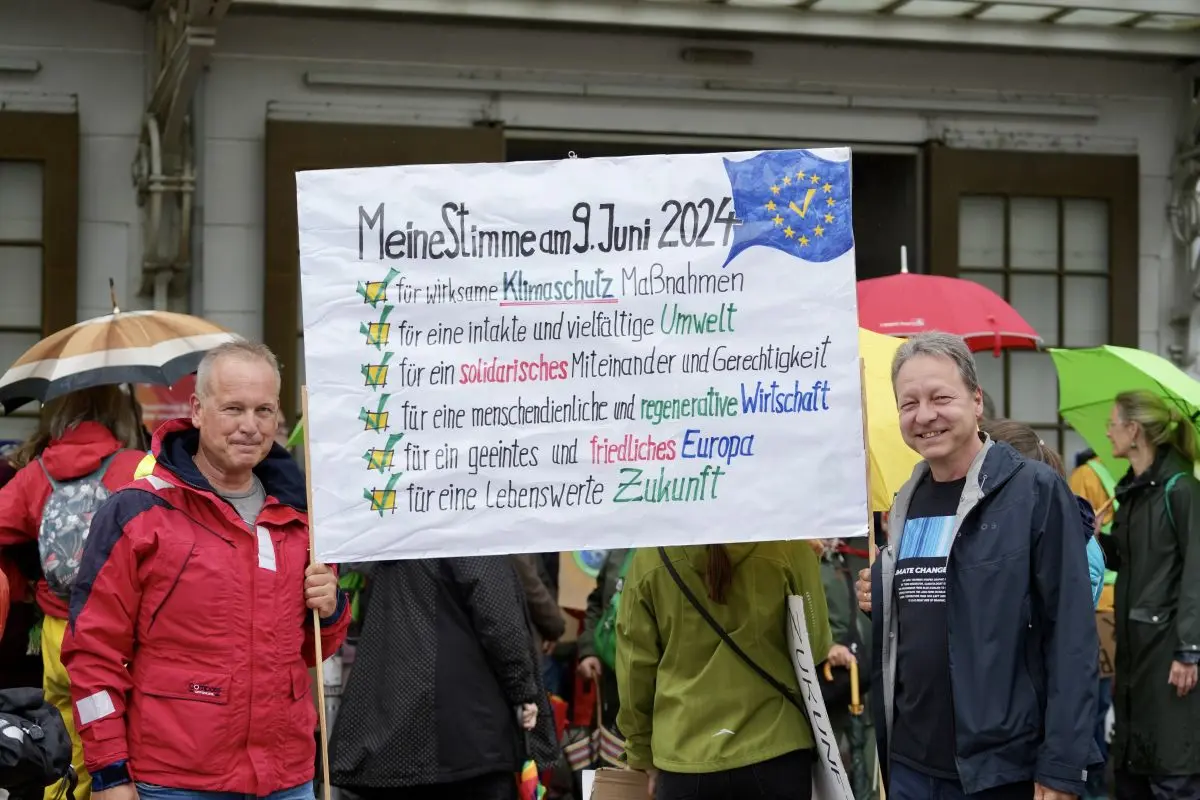 Meine Stimme am 9. Juni 2024
für wirksame Klimaschutz Maßnahmen
für eine intakte und vielfältige Umwelt
für ein solidarisches Miteinander und Gerechtigkeit
für eine menschendienliche und regenerative Wirtschaft
für ein geeintes und friedliches Europa
für eine Lebenswerte Zukunft
MATE CHANGE
ZUKUNF